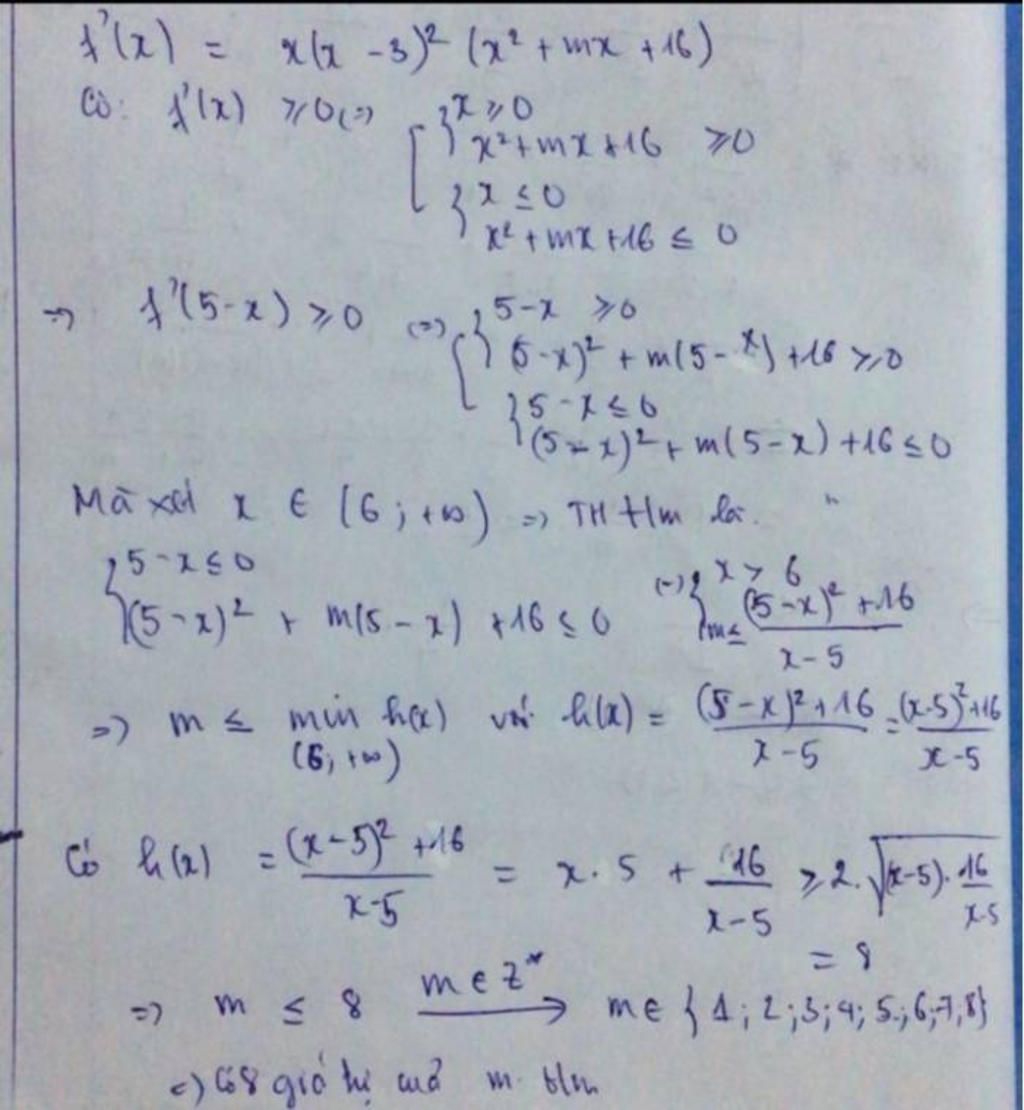 f'(x) = x(x - 3)² (x² + mx + 16)
Có: f'(x) ≥ 0 (=) [ { x ≥ 0
x² + mx + 16 ≥ 0
{ x ≤ 0
x² + mx + 16 ≤ 0
=) f'(5-x) ≥ 0 (=) [ { 5-x ≥ 0
(5-x)² + m(5-x) + 16 ≥ 0
{ 5-x ≤ 0
(5-x)² + m(5-x) + 16 ≤ 0
Mà xét x ∈ (6; +∞) =) TH t/m là.
{ 5-x ≤ 0
(5-x)² + m(5-x) + 16 ≤ 0 (=) { x > 6
m ≤ (5-x)² + 16 / x-5
=) m ≤ min h(x) với h(x) = (5-x)² + 16 / x-5 = (x-5)² + 16 / x-5
(6; +∞)
Có h(x) = (x-5)² + 16 / x-5 = x - 5 + 16 / x-5 ≥ 2.√(x-5). 16 / x-5
= 8
=) m ≤ 8 m ∈ Z* → m ∈ { 1; 2; 3; 4; 5; 6; 7; 8}
=) Có 8 giá trị của m t/m